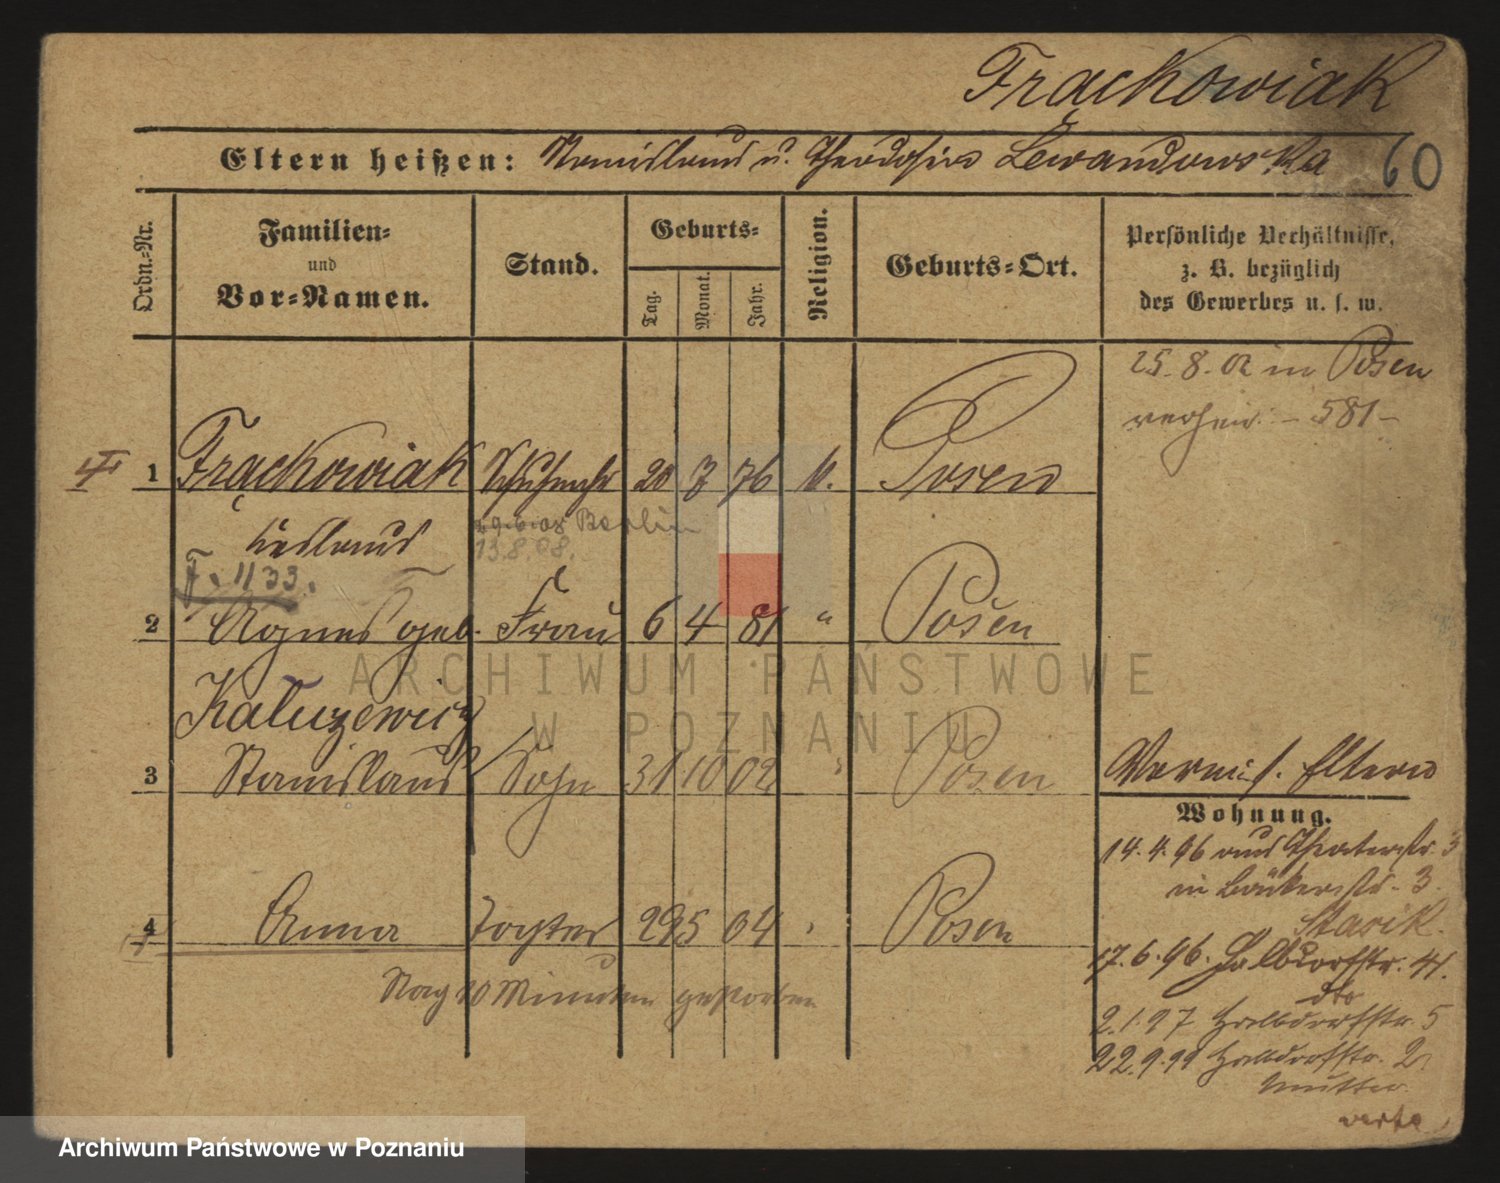 Frąckowiak
Eltern heißen: Stanislaus u. Theodosia Lewandowska 60
Ordn.-Nr.
Familien-
und
Vor-Namen.
Stand.
Geburts-
Tag.
Monat.
Jahr.
Religion.
Geburts-Ort.
Persönliche Verhältnisse,
z. B. bezüglich
des Gewerbes u. s. w.
25. 8. 02 in Posen
verheir. - 581 -
1 Frąckowiak 20 76 Posen
F. 1133.
Berlin
13.8.08.
2 Agnes geb. Frau 6 4 81 " Posen
Kaluzewicz
3 Stanislaus Sohn 31 10 02 " Posen
Eltern
Wohnung.
14. 4. 96 aus Theaterstr. 3
in Bäckerstr. 3.
4 Anna Tochter 29 5 04 Posen
Nach 10 Minuten gestorben
17. 6. 96. Halbdorfstr. 41.
dto
2. 1. 97 Halbdorfstr. 5
22. 9. 99 Halbdorfstr. 2
Mutter.
verte
ARCHIWUM PAŃSTWOWE
W POZNANIU
Archiwum Państwowe w Poznaniu